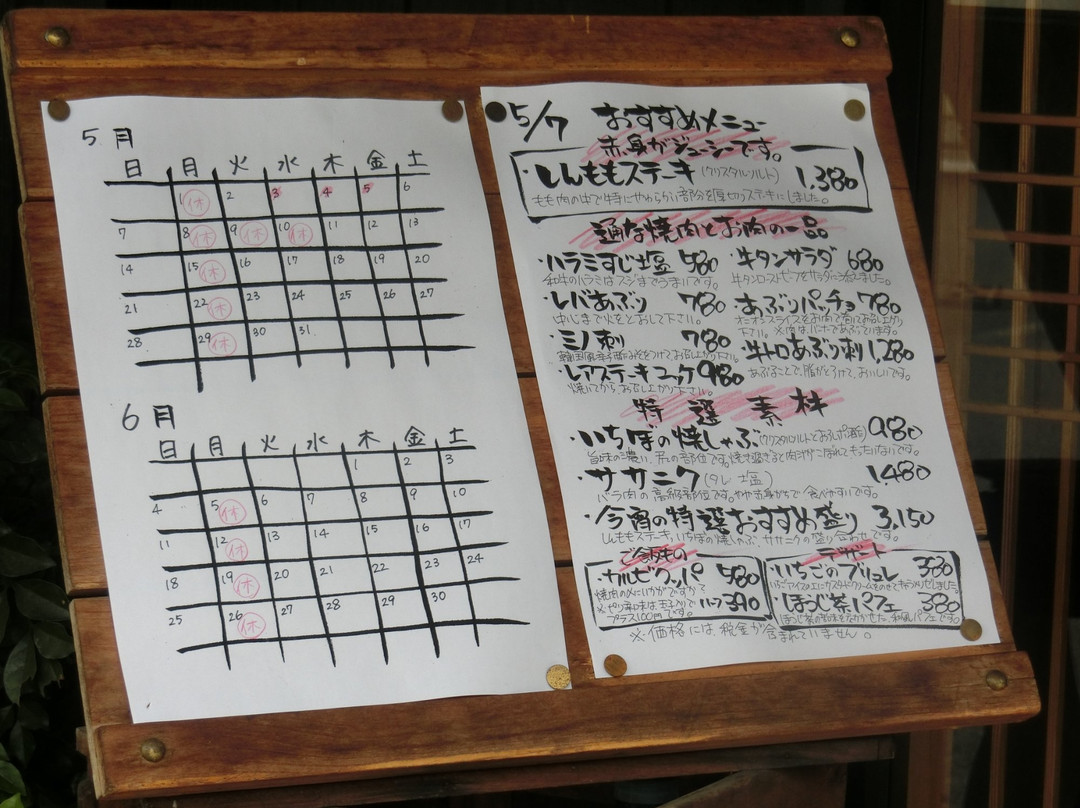 5月
日 月 火 水 木 金 土
1 休 2 3 4 5 6
7 8 休 9 休 10 休 11 12 13
14 15 休 16 17 18 19 20
21 22 休 23 24 25 26 27
28 29 休 30 31
6月
日 月 火 水 木 金 土
1 2 3
4 5 休 6 7 8 9 10
11 12 休 13 14 15 16 17
18 19 休 20 21 22 23 24
25 26 休 27 28 29 30
5/7 おすすめメニュー
赤身がジューシーです。
・しんももステーキ(クリスタルソルト) 1,380
もも肉の中で特にやわらかい部分を厚切りステーキにしました。
通な焼肉とお肉の一品
・ハラミすじ塩 580
和牛のハラミはスジまでうまいです。
・レバあぶり 780
中心まで火をとおして下さい。
・ミノ刺 780
・レアステーキユッケ 980
焼いてからお召し上がり下さい。
・牛タンサラダ 680
牛タンローストビーフをサラダに添えました。
あぶりパッチョ 780
オニオンスライスをお肉で包んでお召し上がり
下さい。※肉はバーナーであぶっています。
・牛トロあぶり刺 1,280
あぶることで、脂がとろけて、おいしいです。
特選素材
・いちぼの焼しゃぶ(クリスタルソルトとおろしポン酢) 980
旨味の濃い、お尻の部位です。焼き過ぎると肉汁がこぼれてもったいないです。
・ササニク(タレ 塩) 1480
バラ肉の高級部位です。やや赤身がちで食べやすいです。
・今宵の特選おすすめ盛り 3,150
しんももステーキ、いちぼの焼しゃぶ、ササニクの盛り合わせです。
ご飯もの
・カルビクッパ 580
焼肉の〆にいかがですか?
ハーフ 390
プラス100円です。
デザート
・いちごのブリュレ 380
いちごアイスの上にカスタードクリームをのせてキャラメリゼしました。
・ほうじ茶パフェ 380
ほうじ茶の風味をなかせた、和風パフェです。
※価格には、税金が含まれていません。